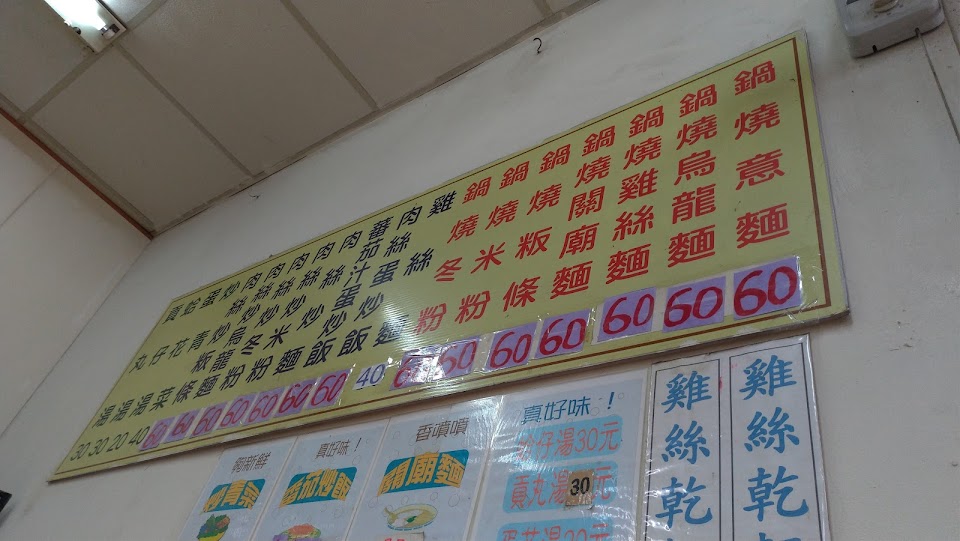 鍋燒意麵60
鍋燒烏龍麵60
鍋燒雞絲麵60
鍋燒關廟麵60
鍋燒粄條60
鍋燒米粉60
鍋燒冬粉60
雞絲麵40
肉絲蛋炒飯60
蕃茄汁蛋炒飯60
肉絲炒麵60
肉絲炒米粉60
肉絲炒冬粉60
肉絲炒烏龍麵60
肉絲炒粄條60
炒青菜40
蛋花湯20
蛤仔湯30
貢丸湯30
夠新鮮
炒青菜
真好味！
蕃茄炒飯
香噴噴
關廟麵
真好味！
蛤仔湯30元
貢丸湯30元
蛋花湯20元
雞絲乾
雞絲乾